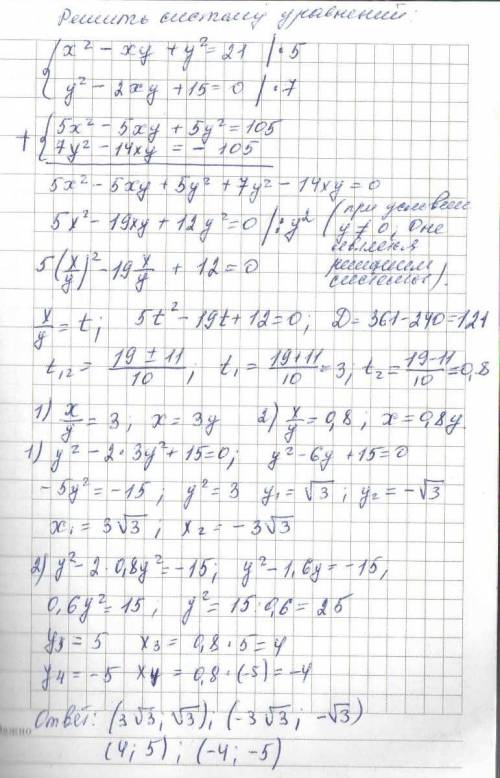 Решить систему уравнений:
{ x² - xy + y² = 21 | · 5
y² - 2xy + 15 = 0 | · 7
+ { 5x² - 5xy + 5y² = 105
7y² - 14xy = - 105
5x² - 5xy + 5y² + 7y² - 14xy = 0
5x² - 19xy + 12y² = 0 | : y² (при условии y ≠ 0, 0 не является решением системы).
5(x/y)² - 19 x/y + 12 = 0
x/y = t; 5t² - 19t + 12 = 0; D = 361 - 240 = 121
t₁,₂ = (19 ± 11)/10; t₁ = (19+11)/10 = 3, t₂ = (19-11)/10 = 0,8
1) x/y = 3; x = 3y 2) x/y = 0,8; x = 0,8y
1) y² - 2 · 3y² + 15 = 0; y² - 6y + 15 = 0
- 5y² = - 15; y² = 3 y₁ = √3; y₂ = - √3
x₁ = 3√3; x₂ = - 3√3
2) y² - 2 · 0,8y² = - 15; y² - 1,6y = - 15,
0,6y² = 15, y² = 15 : 0,6 = 25
y₃ = 5 x₃ = 0,8 · 5 = 4
y₄ = - 5 x₄ = 0,8 · (-5) = - 4
Ответ: (3√3, √3); (-3√3; -√3)
(4; 5); (-4; -5)